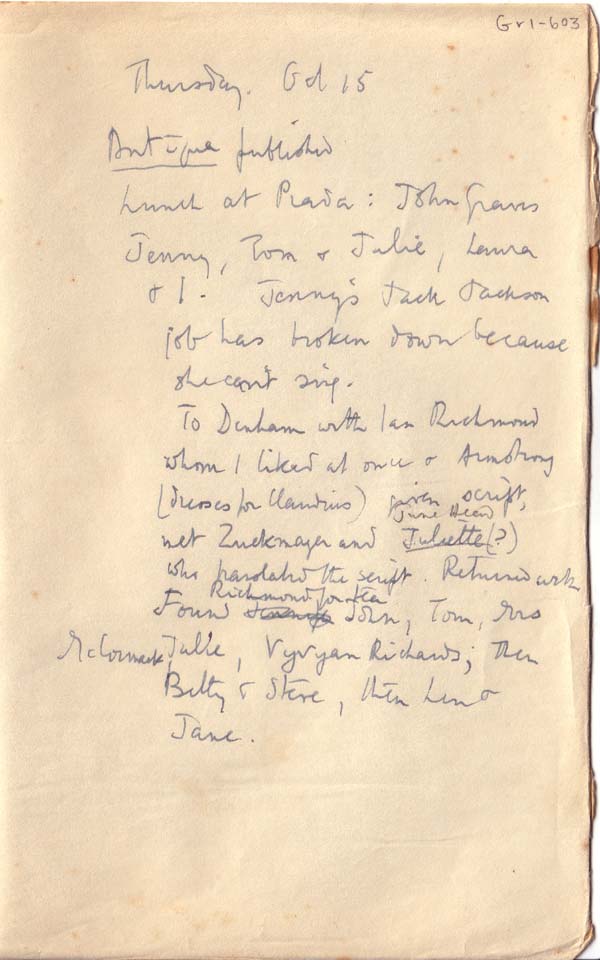 Gr1-603
Thursday. Oct 15
Antigua published
Lunch at Prada: John Graves
Jenny, Tom & Julie, Laura
& I. Jenny's Jack Jackson
job has broken down because
she can't sing.
To Denham with Ian Richmond
whom I liked at once & Armstrong
(dresses for Claudius) given script,
June Head
met Zuckmayer and Juliette(?)
who translated the script. Returned with
Richmond for tea
Found John, Tom, Mrs
McCormack, Julie, Vyvyan Richards; then
Betty & Steve, then Len &
Jane.